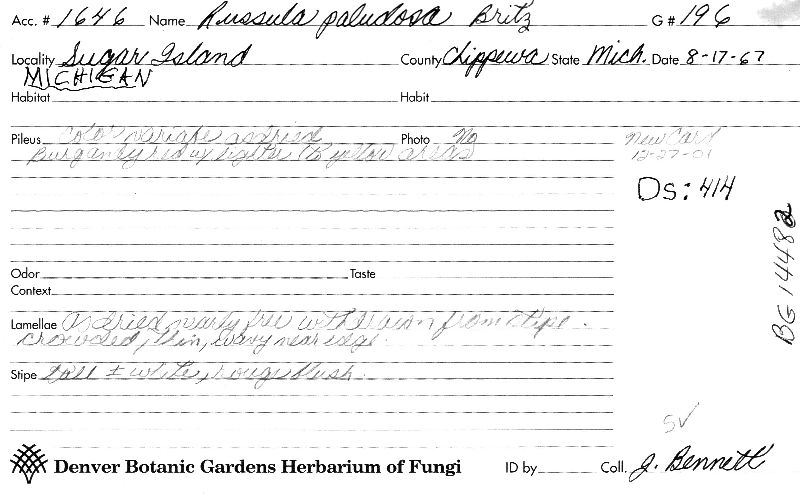 Acc. # 1646 Name Russula paludosa Britz G# 196
Locality Sugar Island County Chippewa State Mich. Date 8-17-67
MICHIGAN
Habitat Habit
Pileus Color variable as dried Photo No New Card
Burgandy red w/ lighter (to yellow) areas 12-27-01
Ds: 414
BG 14482
Odor Taste
Context
Lamellae As dried nearly free withdrawn from stipe.
crowded, thin, wavy near edge.
Stipe ± white, rouge blush.
SV
Denver Botanic Gardens Herbarium of Fungi ID by Coll. J. Bennett